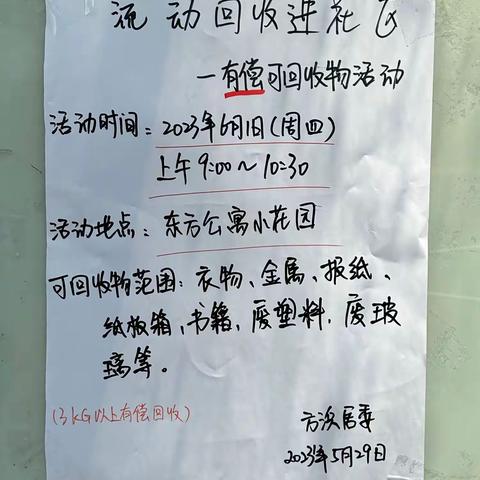 流动回收进社区
一有偿可回收物活动
活动时间：2023年6月1日(周四)
上午9:00～10:30
活动地点：东方公寓小花园
可回收物范围：衣物、金属、报纸、
纸板箱、书籍、废塑料、废玻
璃等。
(3KG以上有偿回收)
方浜居委
2023年5月29日